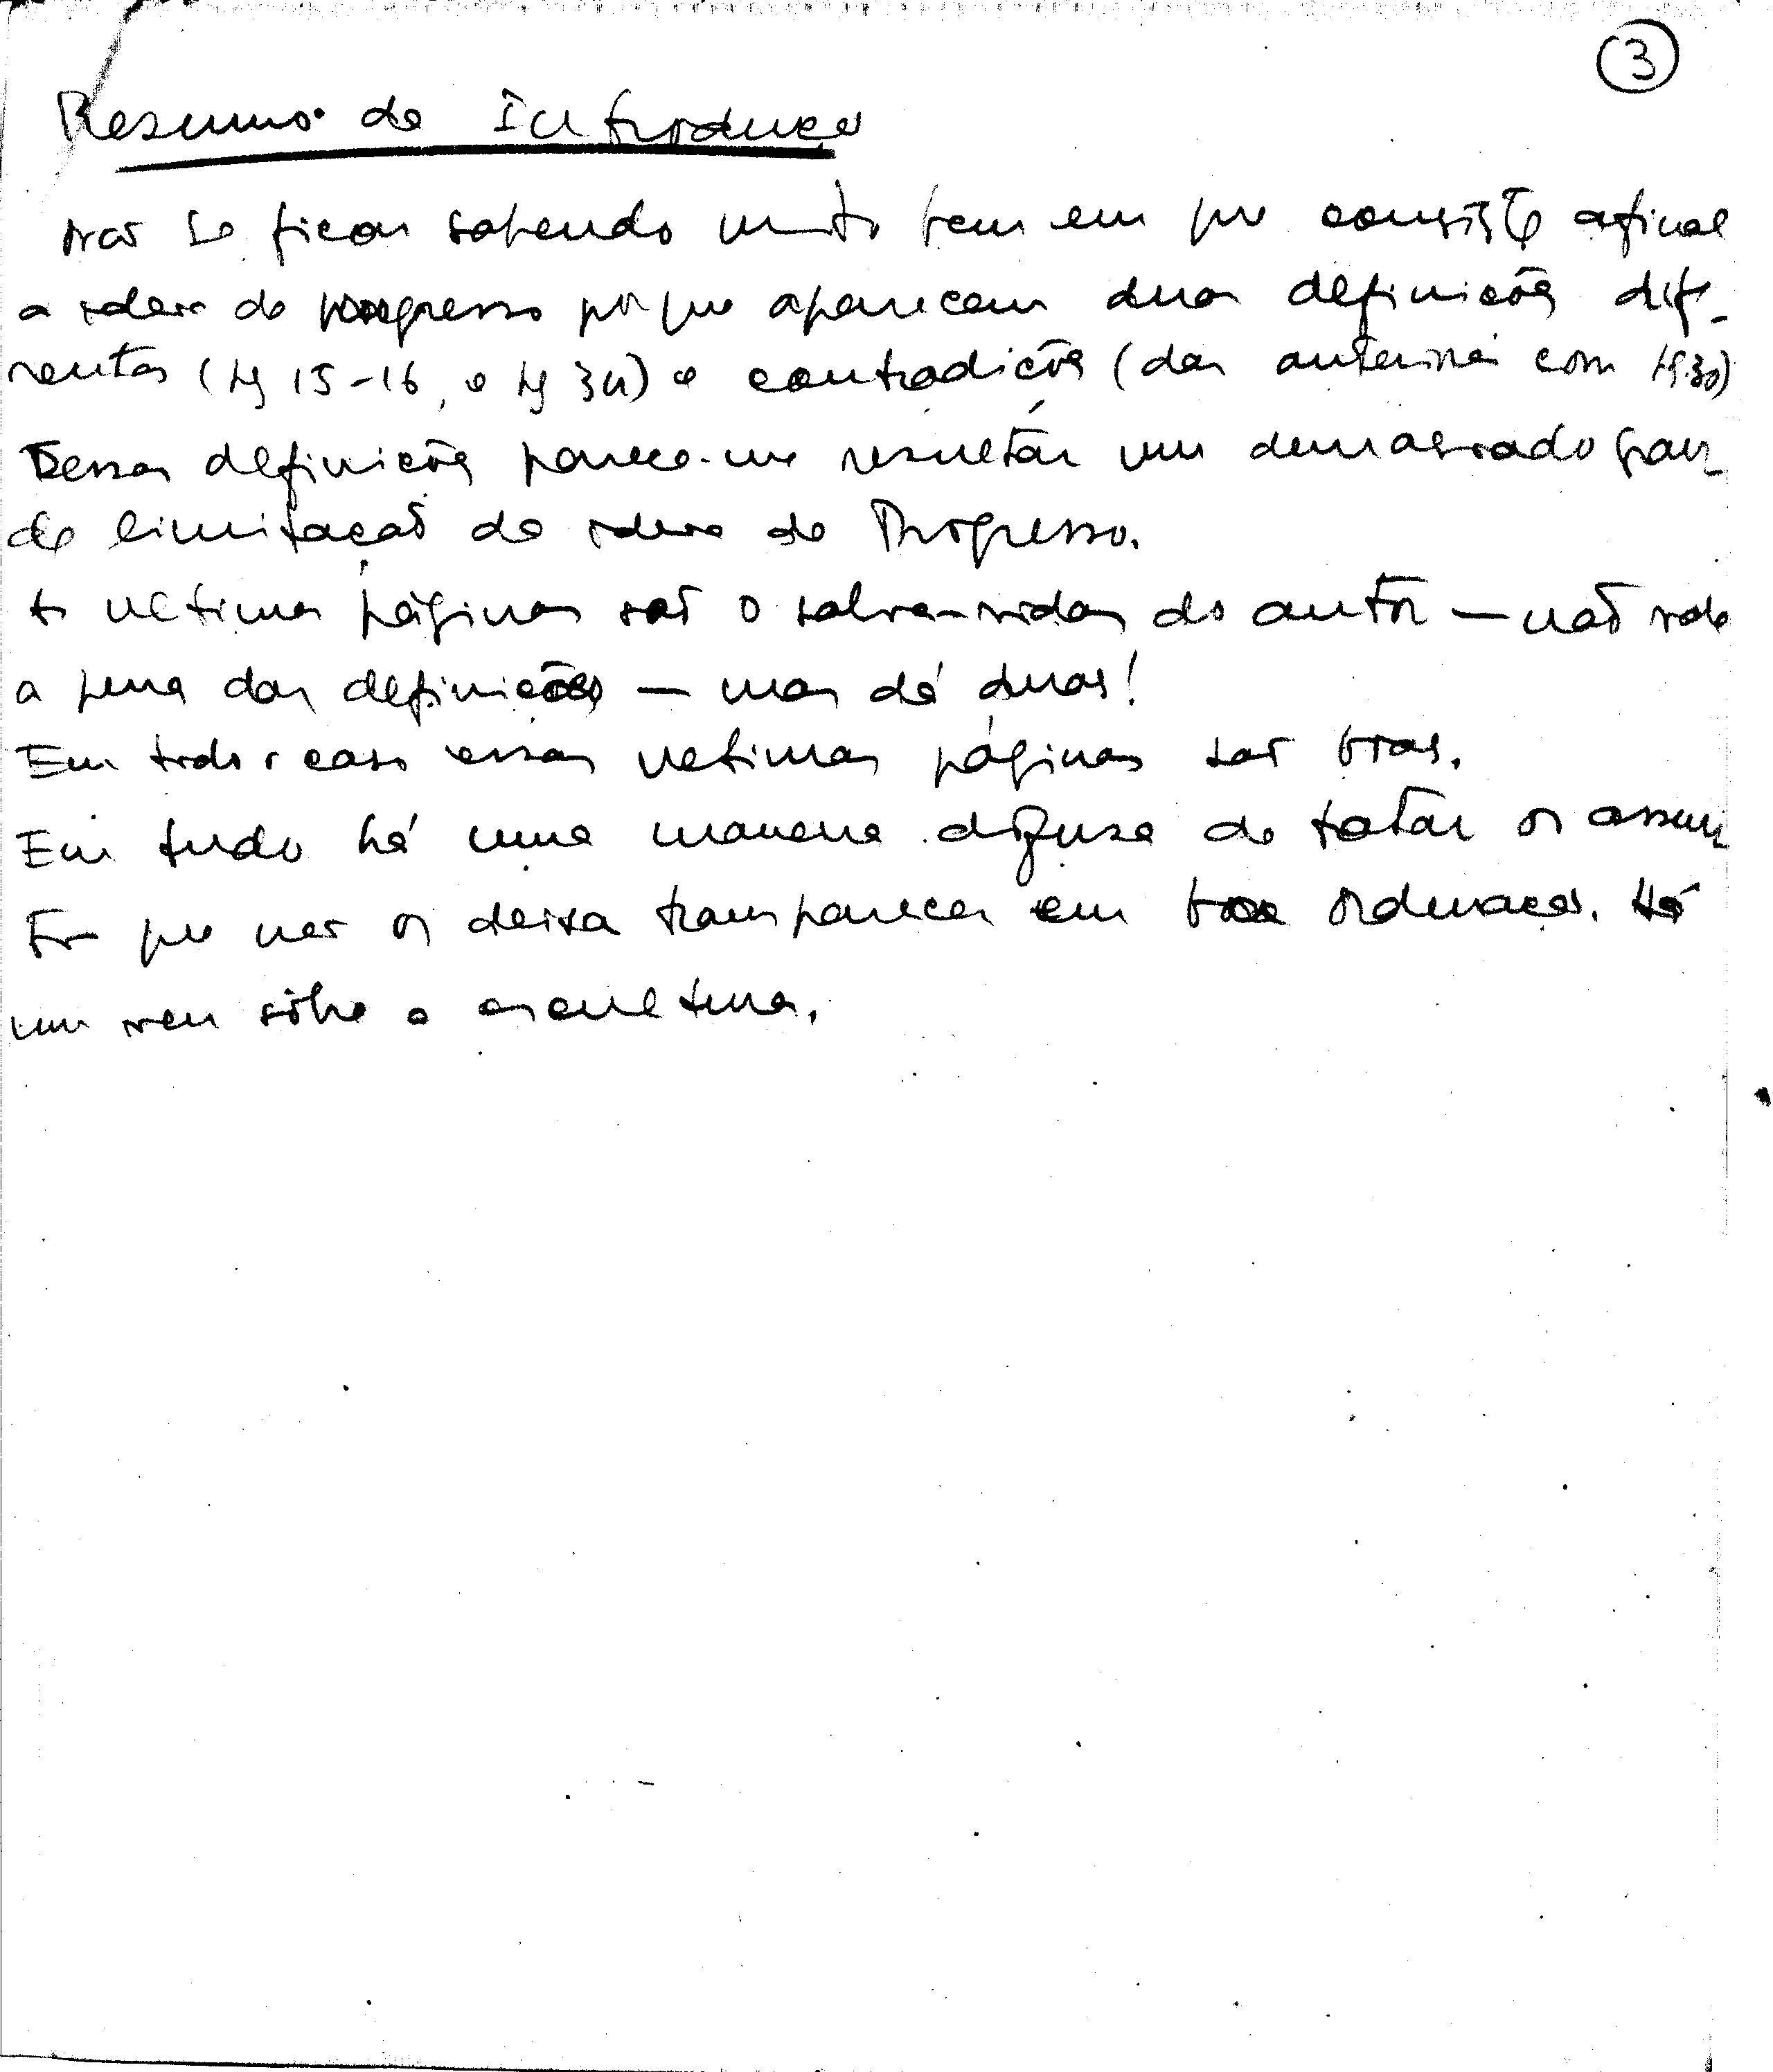 3
Resumo da Introdução
Não se ficou sabendo muito bem em que consiste afinal
a ideia de progresso porque aparecem duas definições dife-
rentes (pg 15-16, e pg 34) e contradições (das anteriores com pg. 30)
Dessas definições parece-me resultar uma demasiado gran-
de limitação da ideia de Progresso.
As ultimas páginas são o salva-vidas do autor — não vale
a pena dar definições — mas dá duas!
Em todo o caso essas ultimas páginas são boas.
Em tudo há uma maneira difusa de tratar os assun-
tos que não os deixa transparecer em boa ordenação. Há
um véu sôbre a escultura.